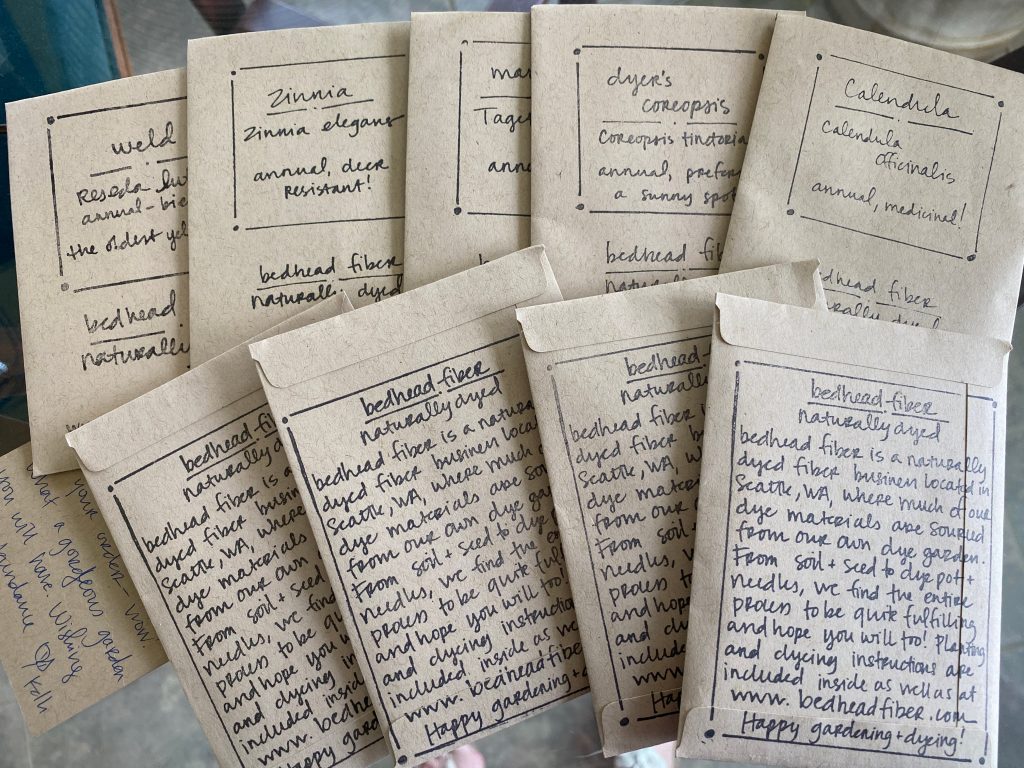 weld
Reseda
annual-bie
the oldest yel
bedhead
naturally
zinnia
zinnia elegans
annual, deer
resistant!
bedhead fiber
naturally dyed
mar
Taget
annu
b
n
dyer's
coreopsis
coreopsis tinctoria
annual, prefer
a sunny spot
bedhead fib
natur
Calendula
Calendula
officinalis
annual, medicinal!
dhead fiber
naturally dyed
your order
wow.
what a gorgeous garden
you will have. Wishing
abundance,
bedhead fibe
naturally dye
bedhead fiber is a
dyed fiber busin
Seattle, WA, where
dye materials
from our own
From soil + seed
needles, we find
process to be qu
and hope you w
and dyeing
included insid
www. bedhead
Happy garde
bedhead fiber
naturally dyed
bedhead fiber is a natura
dyed fiber business locat
Seattle, WA, where much o
dye materials are sou
from our own dye gar
From soil + seed to dye p
needles, we find the en
process to be quite fulfi
and hope you will too!
and dyeing instructio
included inside as we
www. bedheadfiber
Happy gardening + d
bedhead
naturally
bedhead fiber
dyed fiber bu
Seattle, WA,
dye mater
from our
From soil
needles,
process to
and hope
and dy
included
www
Ha
bedhead fiber
naturally dyed
bedhead fiber is a naturally
dyed fiber business located in
Seattle, WA, where much of our
dye materials are sourced
from our own dye garden.
From soil + seed to dye pot +
needles, we find the entire
process to be quite fulfilling
and hope you will too! Planting
and dyeing instructions are
included inside as well as at
www. bedheadfiber.com
Happy gardening + dyeing!